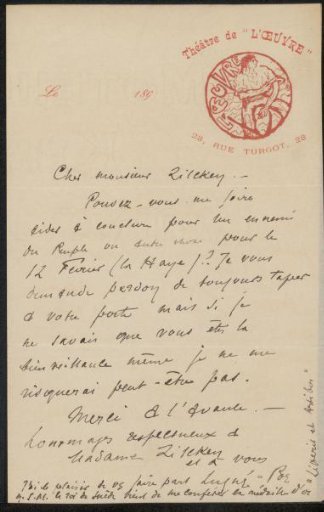 Théâtre de "L'ŒUVRE"
23, RUE TURGOT, 23
Le 189
Cher monsieur Zilcken. -
Pouvez-vous me faire
aider à conclure pour un ennemi
du Peuple ou autre pour le
12 Février (la Haye)? Je vous
demande pardon de toujours taper
à votre porte mais si je
ne savais que vous êtes la
bienveillance même je ne me
risquerai peut-être pas.
Merci à l'avance. -
hommages respectueux à
Madame Zilcken
et à vous
Lugné-Poe
J'ai le plaisir de vs faire part
q. S.M. le roi de Suède vient de me conférer la médaille d'or